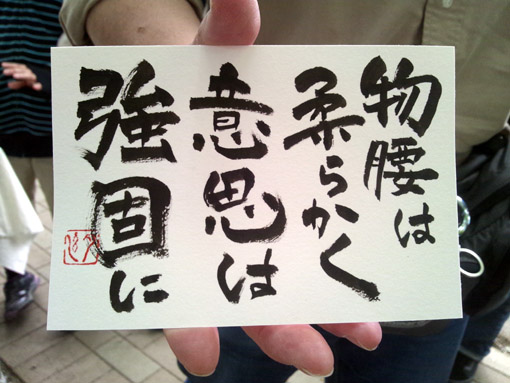 物腰は
柔らかく
意思は
強固に